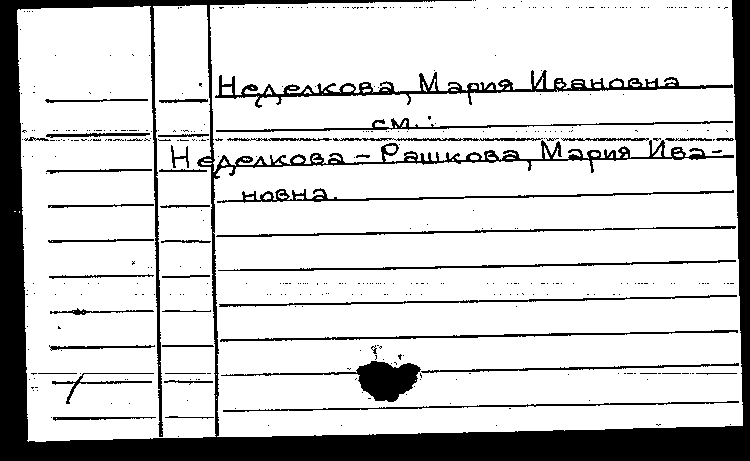 Неделкова, Мария Ивановна
см.:
Неделкова - Рашкова, Мария Ива-
новна.